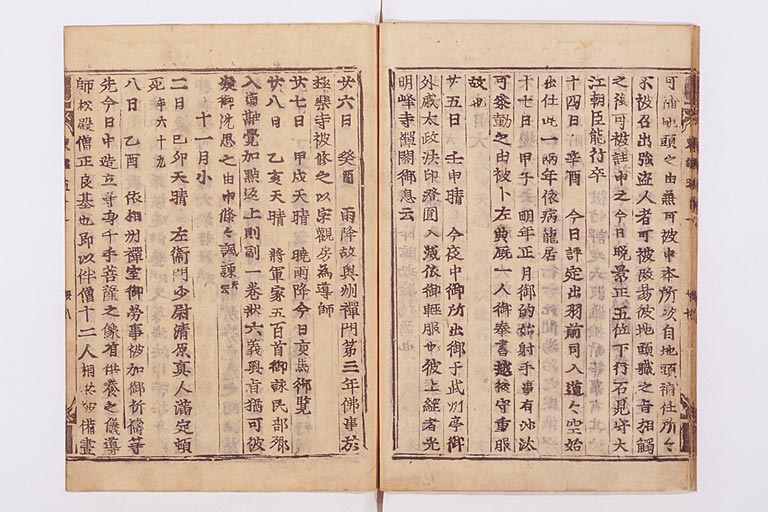 可補地頭之由兼可被申本所次自地頭補任所々
不被召出強盗人者可被改易彼地頭職之旨相觸
之後可被註申之今日晩景正五位下行石見守大
江朝臣能行卒
十四日 辛酉 今日評定出羽前司入道々空始
出仕此一両年依病籠居
十七日 甲子 明年正月御的始射手事有沙汰
可参勤之由被卜左典厩一人御奉書 後守重服
故也
廿五日 壬申晴 今夜中御所出御于武州亭御
外戚太政法印 圓入滅依御軽服也彼上綱者光
明峰寺禪閤御息云
廿六日 癸酉 雨降故奥州禪門第三年佛事於
極樂寺被修之以宗觀房為導師
廿七日 甲戌天晴 曉雨降今日 馬御覽
廿八日 乙亥天晴 將軍家五百首御詠民部卿
入道 覺加點返上則副一巻狀六義奥旨猶可被
凝御沈思之由申條々諷諫云云
十一月小
二日 己卯天晴 左衛門少尉清原真人滿定頓
死年六十九
八日 乙酉 依相州禪室御勞事被加御祈禱等
先今日中造立等身千手菩薩之像有供養之儀導
師松殿僧正良基也即以伴僧十二人相共 備晝